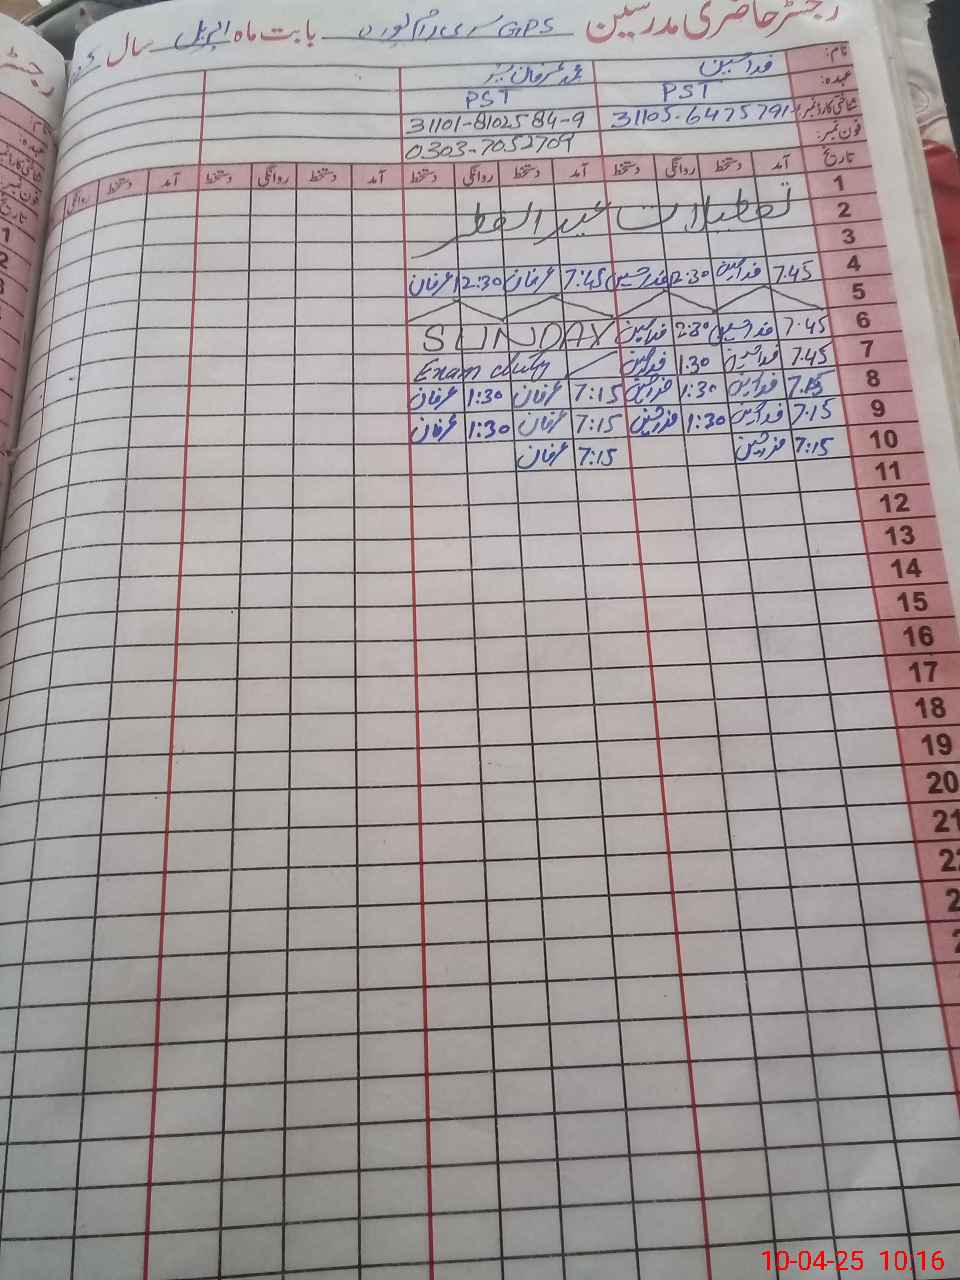 رجسٹر حاضری مدرسین GPS بابت ماہ اپریل سال
نام: فدا حسین محمد عرفان
عہدہ: PST PST
شناختی کارڈ نمبر: 31105-6475791 31101-8102584-9
فون نمبر: 0303-7052709
تاریخ آمد دستخط روانگی دستخط آمد دستخط روانگی دستخط آمد دستخط روانگی دستخط آمد دستخط روانگی
1
2 تعطیلات عید الفطر
3
4 7.45 فدا حسین 2:30 فدا حسین 7:45 عرفان 12:30 عرفان
5
6 7.45 فدا حسین 2:30 فدا حسین SUNDAY
7 7.45 فدا حسین 1:30 فدا حسین Exam duty
8 7.15 فدا حسین 1:30 فدا حسین 7:15 عرفان 1:30 عرفان
9 7:15 فدا حسین 1:30 فدا حسین 7:15 عرفان 1:30 عرفان
10 7:15 فدا حسین 7:15 عرفان
11
12
13
14
15
16
17
18
19
20
21
10-04-25 10:16